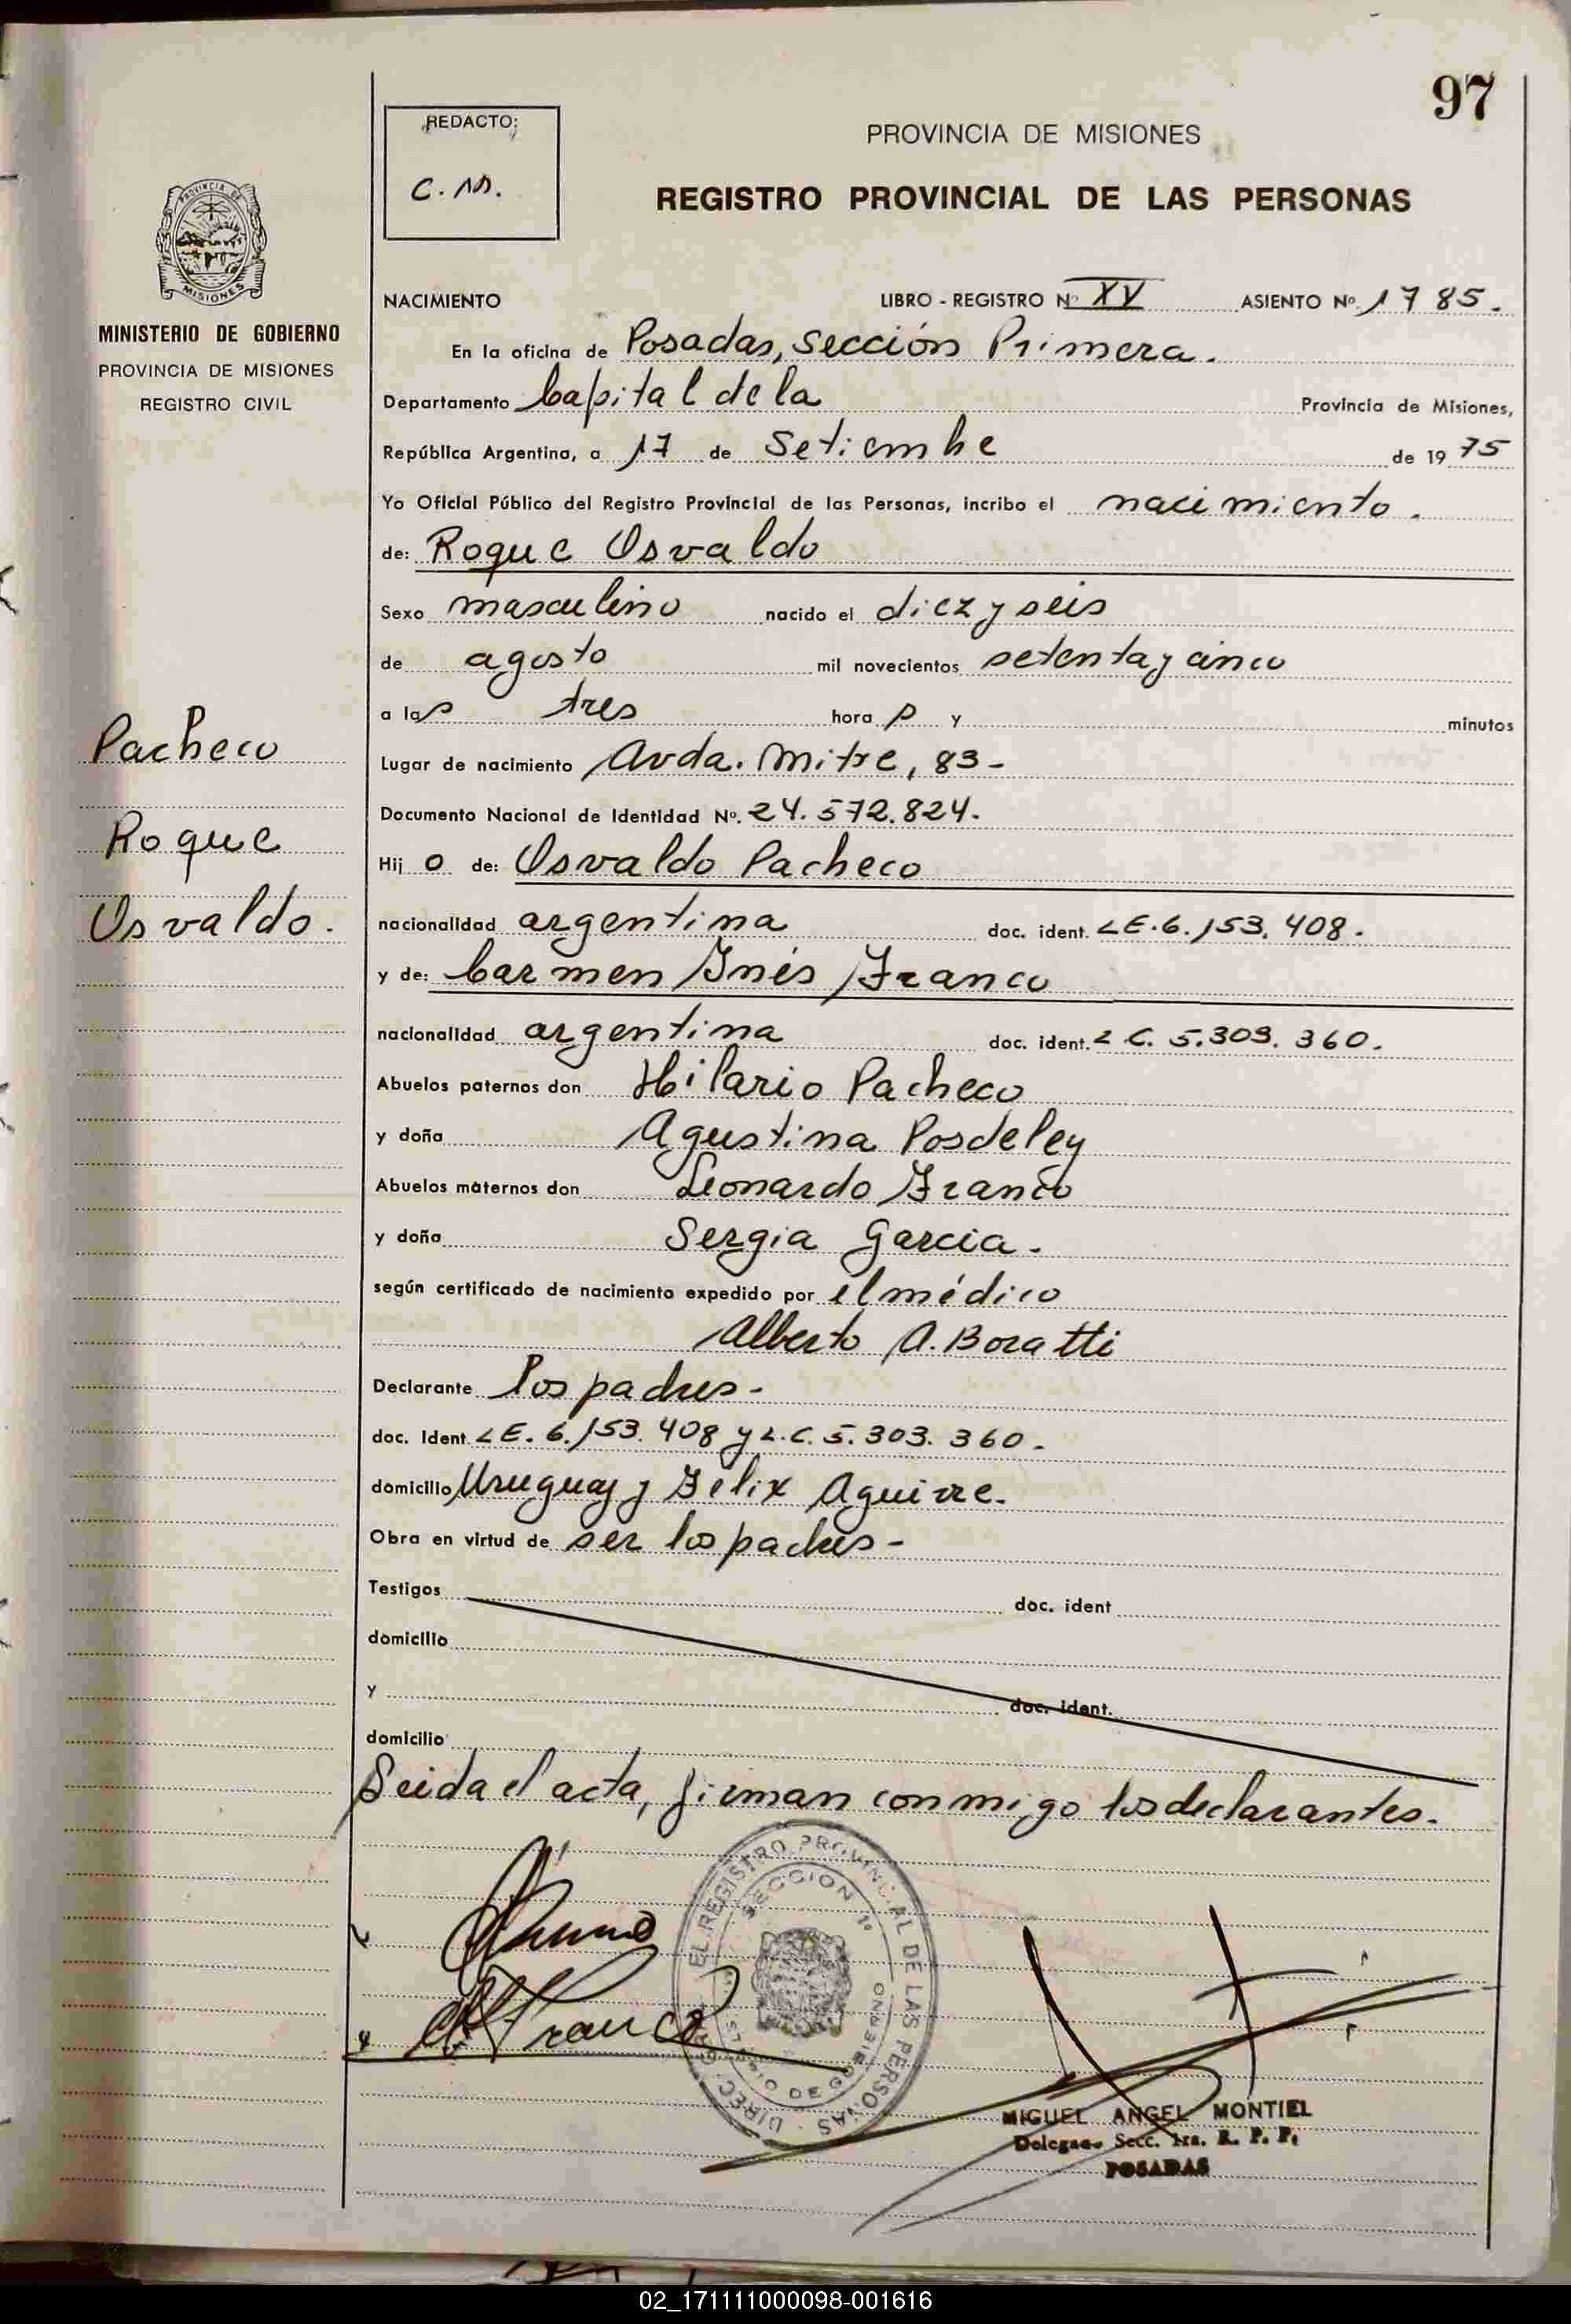 97
REDACTO:
C. M.
PROVINCIA DE MISIONES
REGISTRO PROVINCIAL DE LAS PERSONAS
PROVINCIA DE
MISIONES
MINISTERIO DE GOBIERNO
PROVINCIA DE MISIONES
REGISTRO CIVIL
NACIMIENTO LIBRO - REGISTRO Nº XV ASIENTO Nº 1785.
En la oficina de Posadas, Sección Primera.
Departamento Capital de la Provincia de Misiones,
República Argentina, a 17 de Setiembre de 1975
Yo Oficial Público del Registro Provincial de las Personas, incribo el nacimiento.
de: Roque Osvaldo
Sexo masculino nacido el diez y seis
de agosto mil novecientos setenta y cinco
a las tres hora s y minutos
Lugar de nacimiento Avda. Mitre, 83-
Documento Nacional de Identidad Nº. 24.572.824.
Hij o de: Osvaldo Pacheco
nacionalidad argentina doc. ident. LE. 6.153.408.
y de: Carmen Inés Franco
nacionalidad argentina doc. ident. L C. 5.303.360.
Abuelos paternos don Hilario Pacheco
y doña Agustina Posdeley
Abuelos maternos don Leonardo Franco
y doña Sergia Garcia.
según certificado de nacimiento expedido por el médico
Alberto A. Boratti
Declarante los padres-
doc. Ident LE. 6.153.408 y L.C. 5.303.360.
domicilio Uruguay y Félix Aguirre.
Obra en virtud de ser los padres-
Testigos doc. ident
domicilio
y doc. ident.
domicilio
Leida el acta, firman conmigo los declarantes.
Pacheco
Roque
Osvaldo.
Franco
EL REGISTRO PROVINCIAL DE LAS PERSONAS
SECCION 1º
DE GOBIERNO
MIGUEL ANGEL MONTIEL
Delegado Secc. 1ra. R. P. P.
POSADAS
02_171111000098-001616